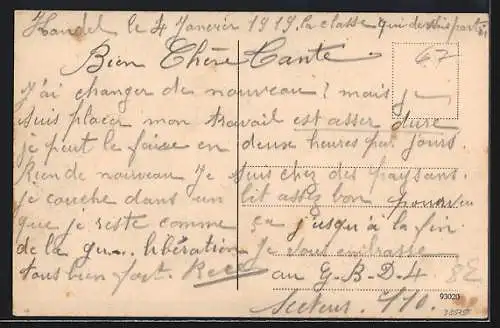 Kandel le 4 Janvier 1919, la classe qui devais partir
Bien Chère Tante. 67
J'ai changer de nouveau ? mais je
suis placer mon travail est asser dure
je peut le faire en deux heures par jours.
Rien de nouveau Je suis chez des paysans.
je couche dans un lit assez bon pourvu
que je reste comme ça jusqu'à la fin
de la gu... libération Je vous embrasse
tous bien fort. René
au G-B-D-4 8E
93020
Secteur. 110.